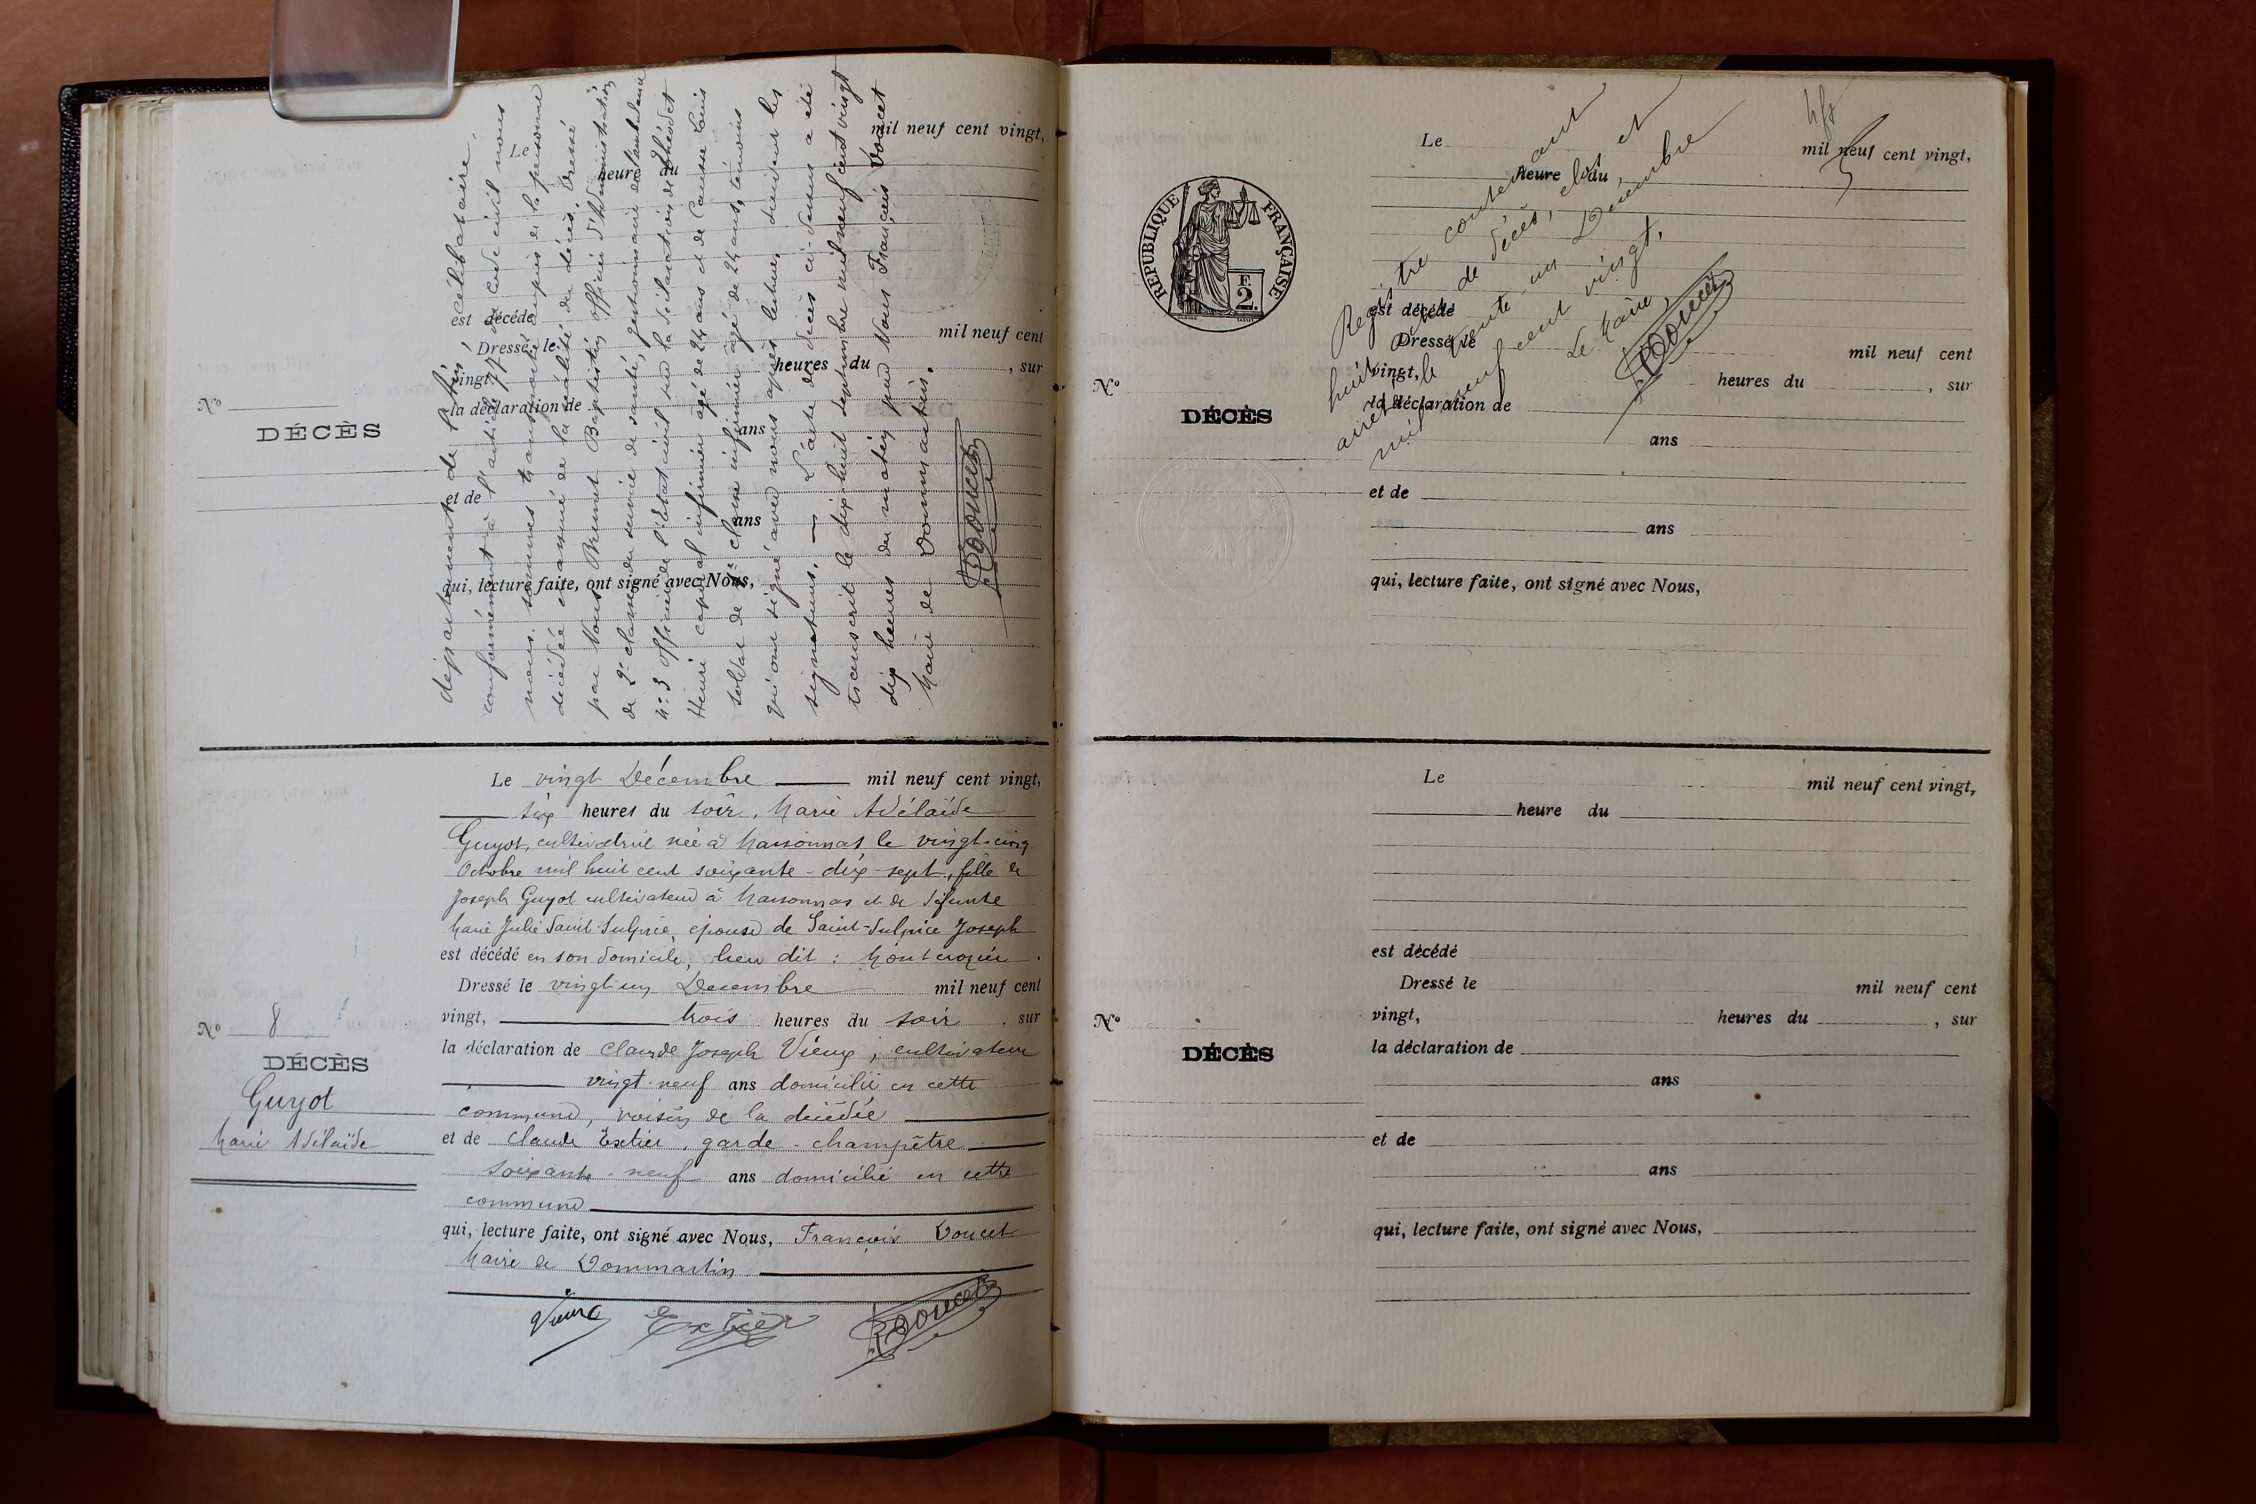 Le mil neuf cent vingt,
heure du
est décédé
Dressé le mil neuf cent
vingt, heures du , sur
la déclaration de
ans
et de
ans
qui, lecture faite, ont signé avec Nous,
Nº
DÉCÈS
département de l'Ain, célibataire.
conformément à l'article 77 du code civil nous
nous sommes transporté auprès de la personne
décédée et assuré de la réalité du décès. Dressé
par Nous Brunet Baptistin officier d'Administration
de 2e classe du service de santé, gestionnaire de l'ambulance
n° 3 officier de l'Etat civil sur la déclaration de Théodet
Henri caporal infirmier agé de 24 ans et de Causse Louis
soldat de 1e classe infirmier agé de 24 ans, témoins
qui ont signé avec nous après lecture, suivent les
signatures. — L'acte de décès ci-dessus a été
transcrit le dix huit septembre mil neuf cent vingt
dix heures du matin par Nous François Doucet
Maire de Dommartin.
Doucet
Le vingt Décembre mil neuf cent vingt,
six heures du soir, Marie Adélaïde
Guyot, cultivatrice née à Marsonnas le vingt-cinq
Octobre mil huit cent soixante-dix-sept, fille de
Joseph Guyot cultivateur à Marsonnas et de défunte
Marie Julie Saint-Sulpice, épouse de Saint-Sulpice Joseph
est décédé en son domicile, lieu dit : Montcrozier.
Dressé le vingt un Decembre mil neuf cent
vingt, trois heures du soir, sur
la déclaration de Claude Joseph Vieux, cultivateur
vingt-neuf ans domicilié en cette
commune, voisin de la décédée
et de Claude Extier, garde-champêtre
soixante-neuf ans domicilié en cette
commune
qui, lecture faite, ont signé avec Nous, François Doucet
Maire de Dommartin
Vieux Extier Doucet
Nº 8
DÉCÈS
Guyot
Marie Adélaïde
Le mil neuf cent vingt,
heure du
est décédé
Dressé le mil neuf cent
vingt, heures du , sur
la déclaration de
ans
et de
ans
qui, lecture faite, ont signé avec Nous,
RÉPUBLIQUE FRANÇAISE
F.
2
Nº
DÉCÈS
Registre contenant
huit actes de décès, clos et
arrêté le trente-un Décembre
mil neuf cent vingt.
Le Maire,
Doucet
Le mil neuf cent vingt,
heure du
est décédé
Dressé le mil neuf cent
vingt, heures du , sur
la déclaration de
ans
et de
ans
qui, lecture faite, ont signé avec Nous,
Nº
DÉCÈS